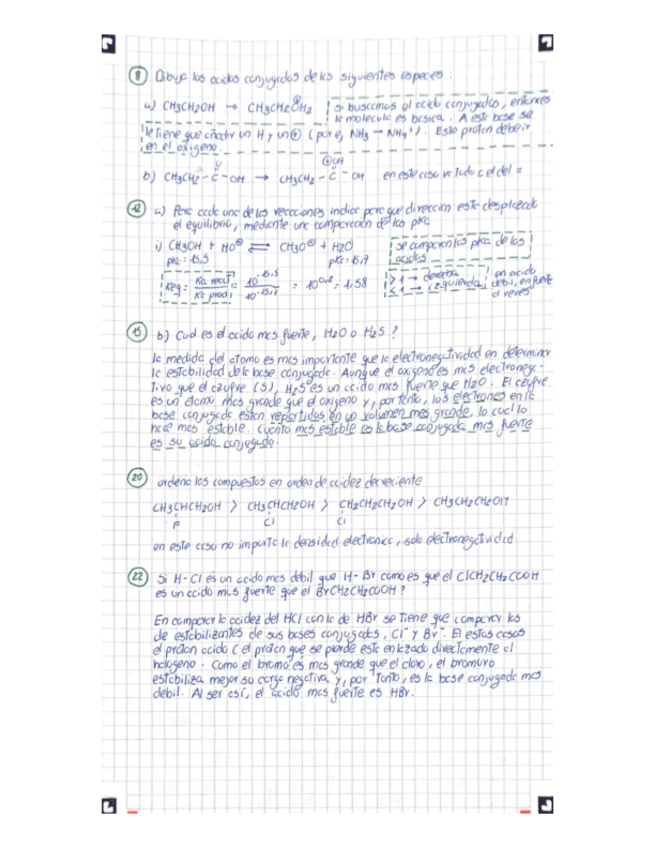 8 Dibuja los acidos conjugados de las siguientes especies:
a) CH3CH2OH → CH3CH2ÖH2 si buscamos el acido conjugado, entonces
la molecula es basica. A esta base se
le tiene que añadir un H y un ⊕ (por ej, NH3 → NH4⁺). Este proton debe ir
en el oxigeno.
b) CH3CH2-C-OH → CH3CH2-C-OH en este caso va
O ⊕OH
12 a) Para cada una de las reacciones indica para que direccion esta desplazado
el equilibrio, mediante una comparacion de los pKa
i) CH3OH + HO⊖ ⇌ CH3O⊖ + H2O se comparan los pKa de los
acidos
pKa = 15,5 pKa = 15,7
Keq = Ka react / Ka prod = 10^-15,5 / 10^-15,7 = 10^0,2 = 1,58
> 1 → derecha
< 1 → izquierda
en acido
debil, en fuerte
al reves
15 b) Cual es el acido mas fuerte, H2O o H2S?
la medida del atomo es mas importante que la electronegatividad en determinar
la estabilidad de la base conjugada. Aunque el oxigeno es mas electronega-
tivo que el azufre (S), H2S es un acido mas fuerte que H2O. El azufre
es un atomo mas grande que el oxigeno y, por tanto, los electrones en la
base conjugada estan repartidos en un volumen mas grande, lo cual lo
hace mas estable. Cuanto mas estable es la base conjugada mas fuerte
es su acido conjugado.
20 ordena los compuestos en orden de acidez decreciente
CH3CHCH2OH > CH3CHCH2OH > CH2CH2CH2OH > CH3CH2CH2OH
F Cl Cl
en este caso no importa la densidad electronica, solo electronegatividad
22 Si H-Cl es un acido mas debil que H-Br como es que el ClCH2CH2COOH
es un acido mas fuerte que el BrCH2CH2COOH?
En comparar la acidez del HCl con la de HBr se tiene que comparar las
de estabilizantes de sus bases conjugadas, Cl⁻ y Br⁻. El estos casos
el proton acido (el proton que se pierde esta enlazado directamente al
halogeno. Como el bromo es mas grande que el cloro, el bromuro
estabiliza mejor su carga negativa y, por tanto, es la base conjugada mas
debil. Al ser asi, el acido mas fuerte es HBr.